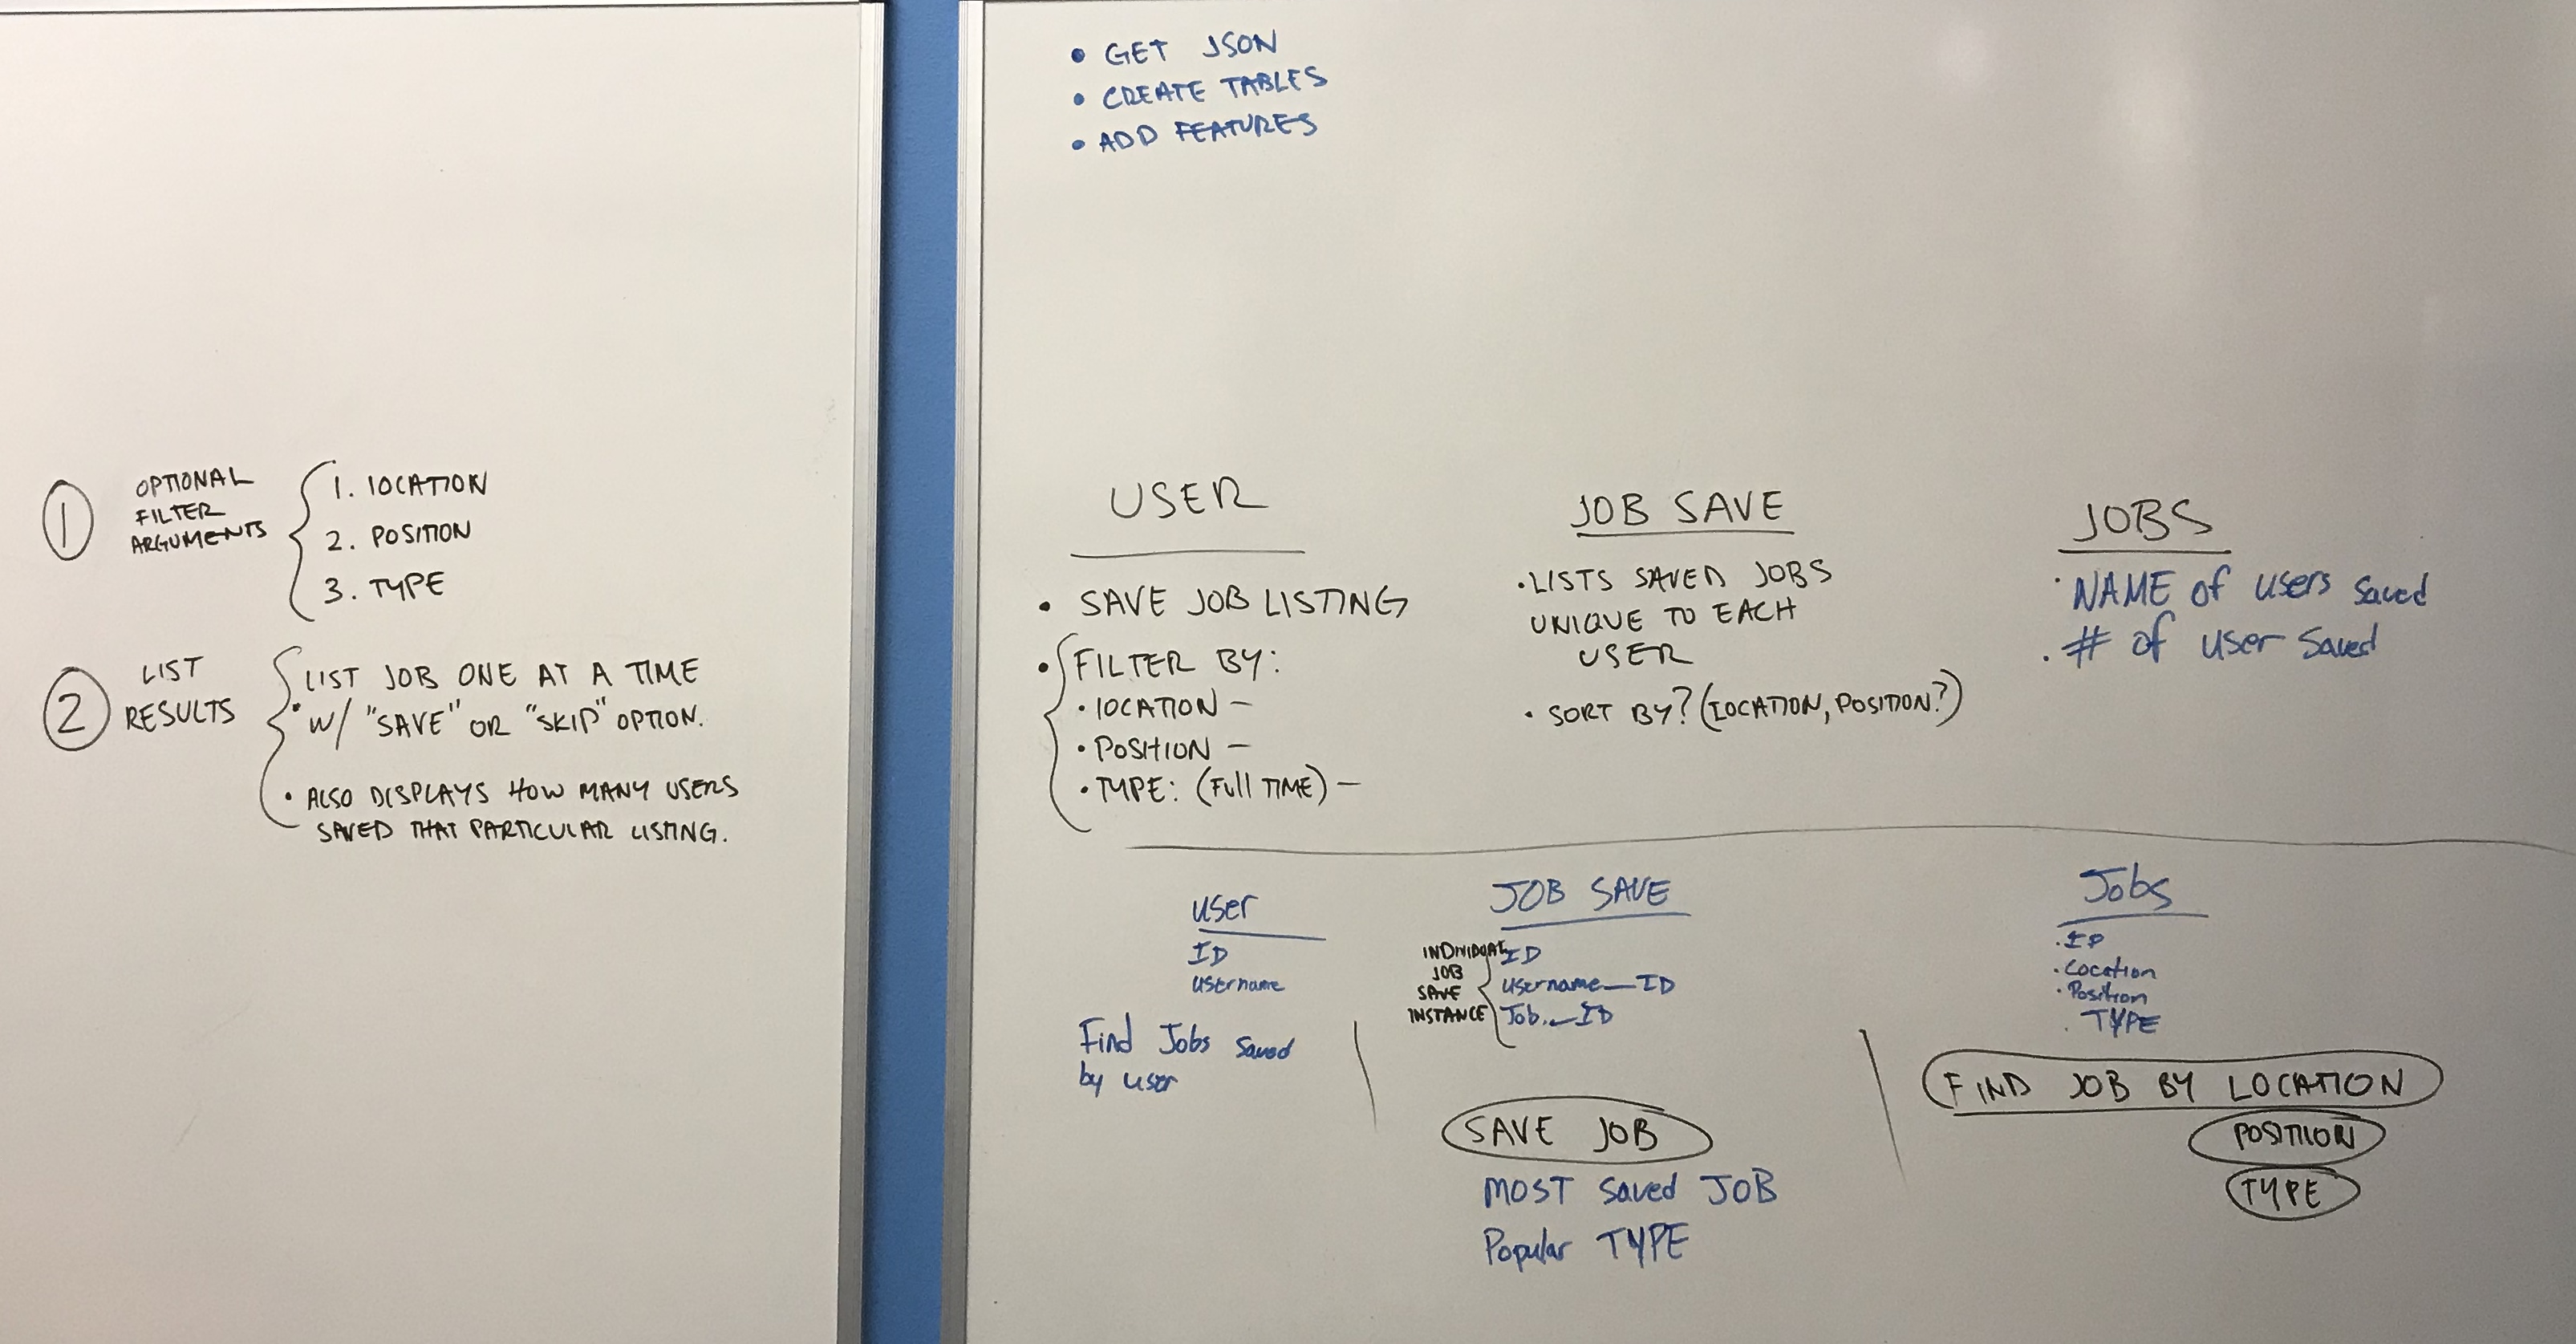 ① OPTIONAL
FILTER
ARGUMENTS
1. LOCATION
2. POSITION
3. TYPE
② LIST
RESULTS
LIST JOB ONE AT A TIME
• W/ "SAVE" OR "SKIP" OPTION.
• ALSO DISPLAYS HOW MANY USERS
SAVED THAT PARTICULAR LISTING.
• GET JSON
• CREATE TABLES
• ADD FEATURES
USER
• SAVE JOB LISTING
• FILTER BY:
• LOCATION –
• POSITION –
• TYPE: (FULL TIME) –
JOB SAVE
• LISTS SAVED JOBS
UNIQUE TO EACH
USER
• SORT BY? (LOCATION, POSITION?)
JOBS
• NAME of users saved
• # of user saved
user
ID
username
Find Jobs saved
by user
JOB SAVE
INDIVIDUAL
JOB
SAVE
INSTANCE
ID
username_ID
Job_ID
SAVE JOB
MOST saved JOB
Popular TYPE
Jobs
• ID
• Location
• Position
• TYPE
FIND JOB BY LOCATION
POSITION
TYPE